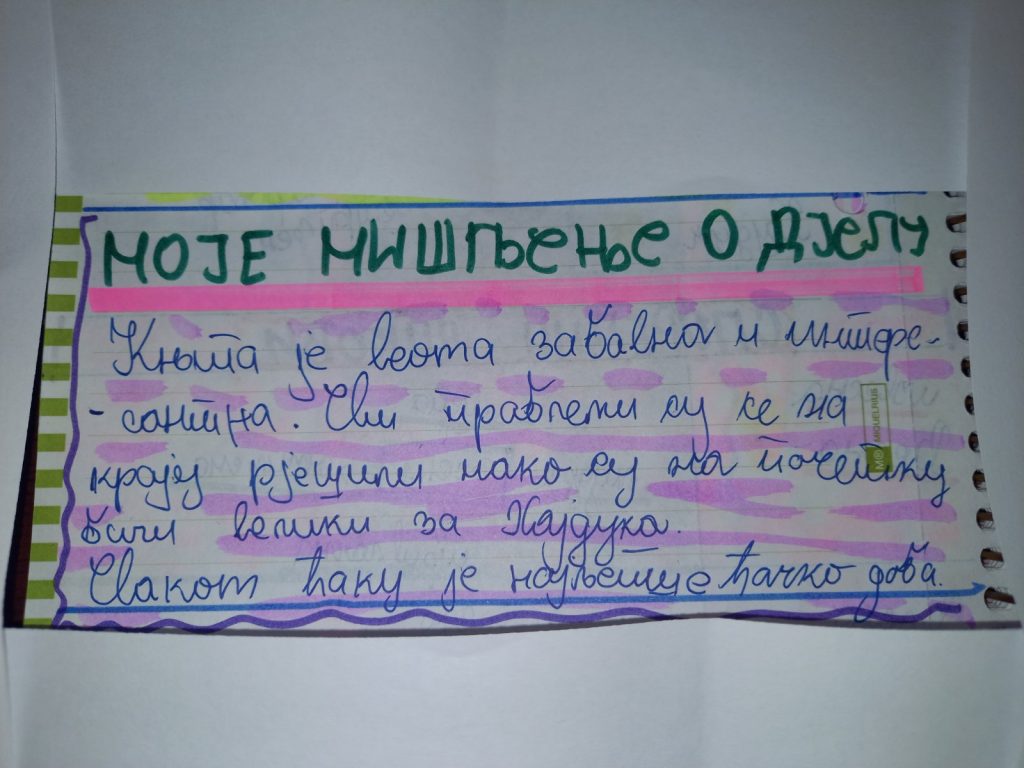 МОЈЕ МИШЉЕЊЕ О ДЈЕЛУ
Књига је веома забавна и интере-
-сантна. Сви проблеми су се на
крају ријешили иако су на почетку
били велики за Хајдука.
Сваком ђаку је најљепше ђачко доба.
MIQUELRIUS